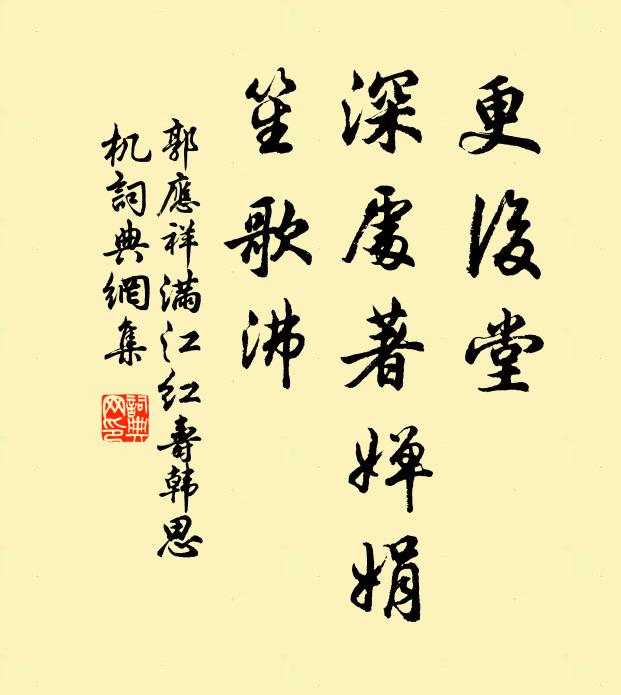 更後堂
深處著嬋娟
笙歌沸
郭應祥滿江紅壽韩思
机詞典網集
詞典
网印